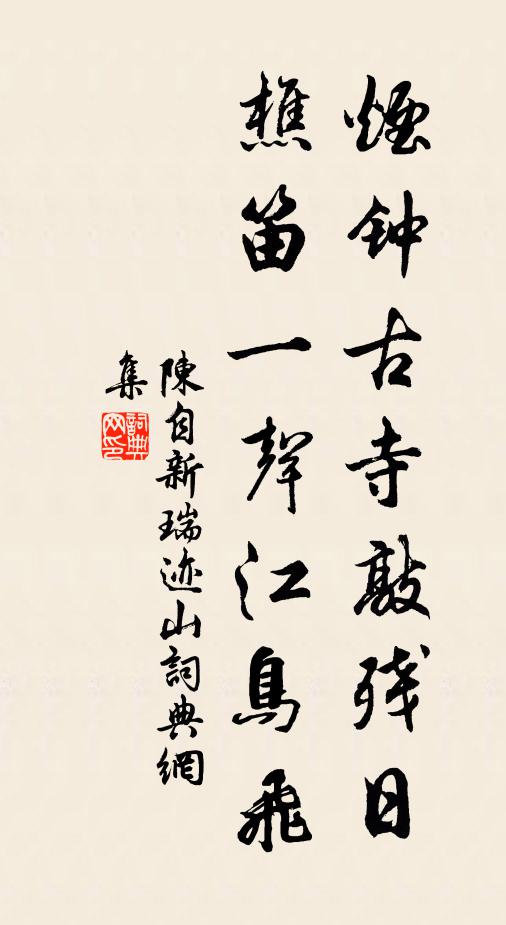 煙钟古寺敲残日
樵笛一聲江鳥飛
陳自新瑞迹山詞典網
集
詞典
网印